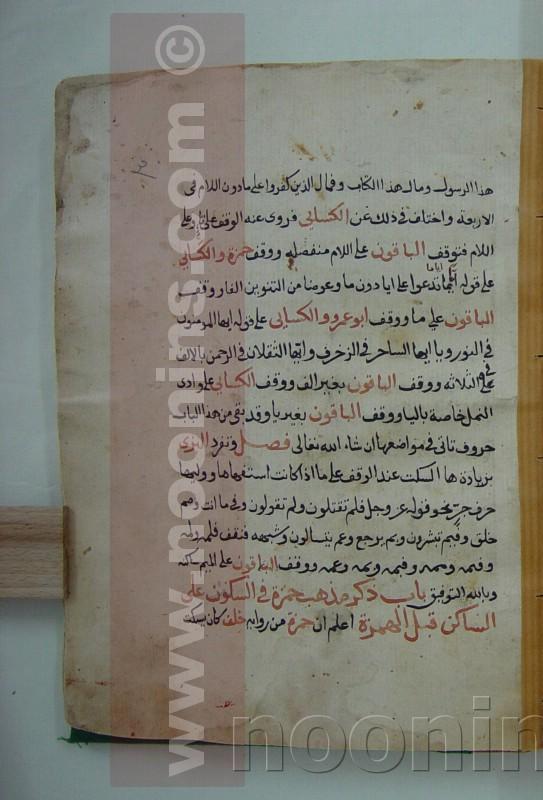 هذا الرسول ومال هذا الكتاب وفمال الذين كفروا على ما دون اللام في
الاربعة واختلف في ذلك عن الكسائي فروى عنه الوقف على ما وعلى
اللام فتوقف الباقون على اللام منفصلة ووقف حمزة والكسائي
على قوله اياما تدعوا على ايا دون ما وعوضا من التنوين الفا ووقف
الباقون على ما ووقف ابو عمرو والكسائي على قوله ايها المومنون
في النور ويا ايها الساحر في الزخرف وايها الثقلان في الرحمن بالالف
في الثلاثة ووقف الباقون بغير الف ووقف الكسائي على وادي
النمل خاصة بالياء ووقف الباقون بغير ياء وقد بقي من هذا الباب
حروف تاتي في مواضعها ان شاء الله تعالى فصل وتفرد البزي
بزيادة هاء السكت عند الوقف على ما اذا كانت استفهاما ووليها
حرف جر نحو قوله عز وجل فلم تقتلون ولم تقولون وفيم انت ومم
خلق وفبم تبشرون وبم يرجع وعم يتسالون وشبهه فيقف فلمه ولمه
وفيمه وممه وفبمه وبمه وعمه ووقف الباقون على الميم ساكنة
وبالله التوفيق باب ذكر مذهب حمزة في السكون على
الساكن قبل الهمزة اعلم ان حمزة من رواية خلف كان يسكت
www.noonins.com ©
noonin